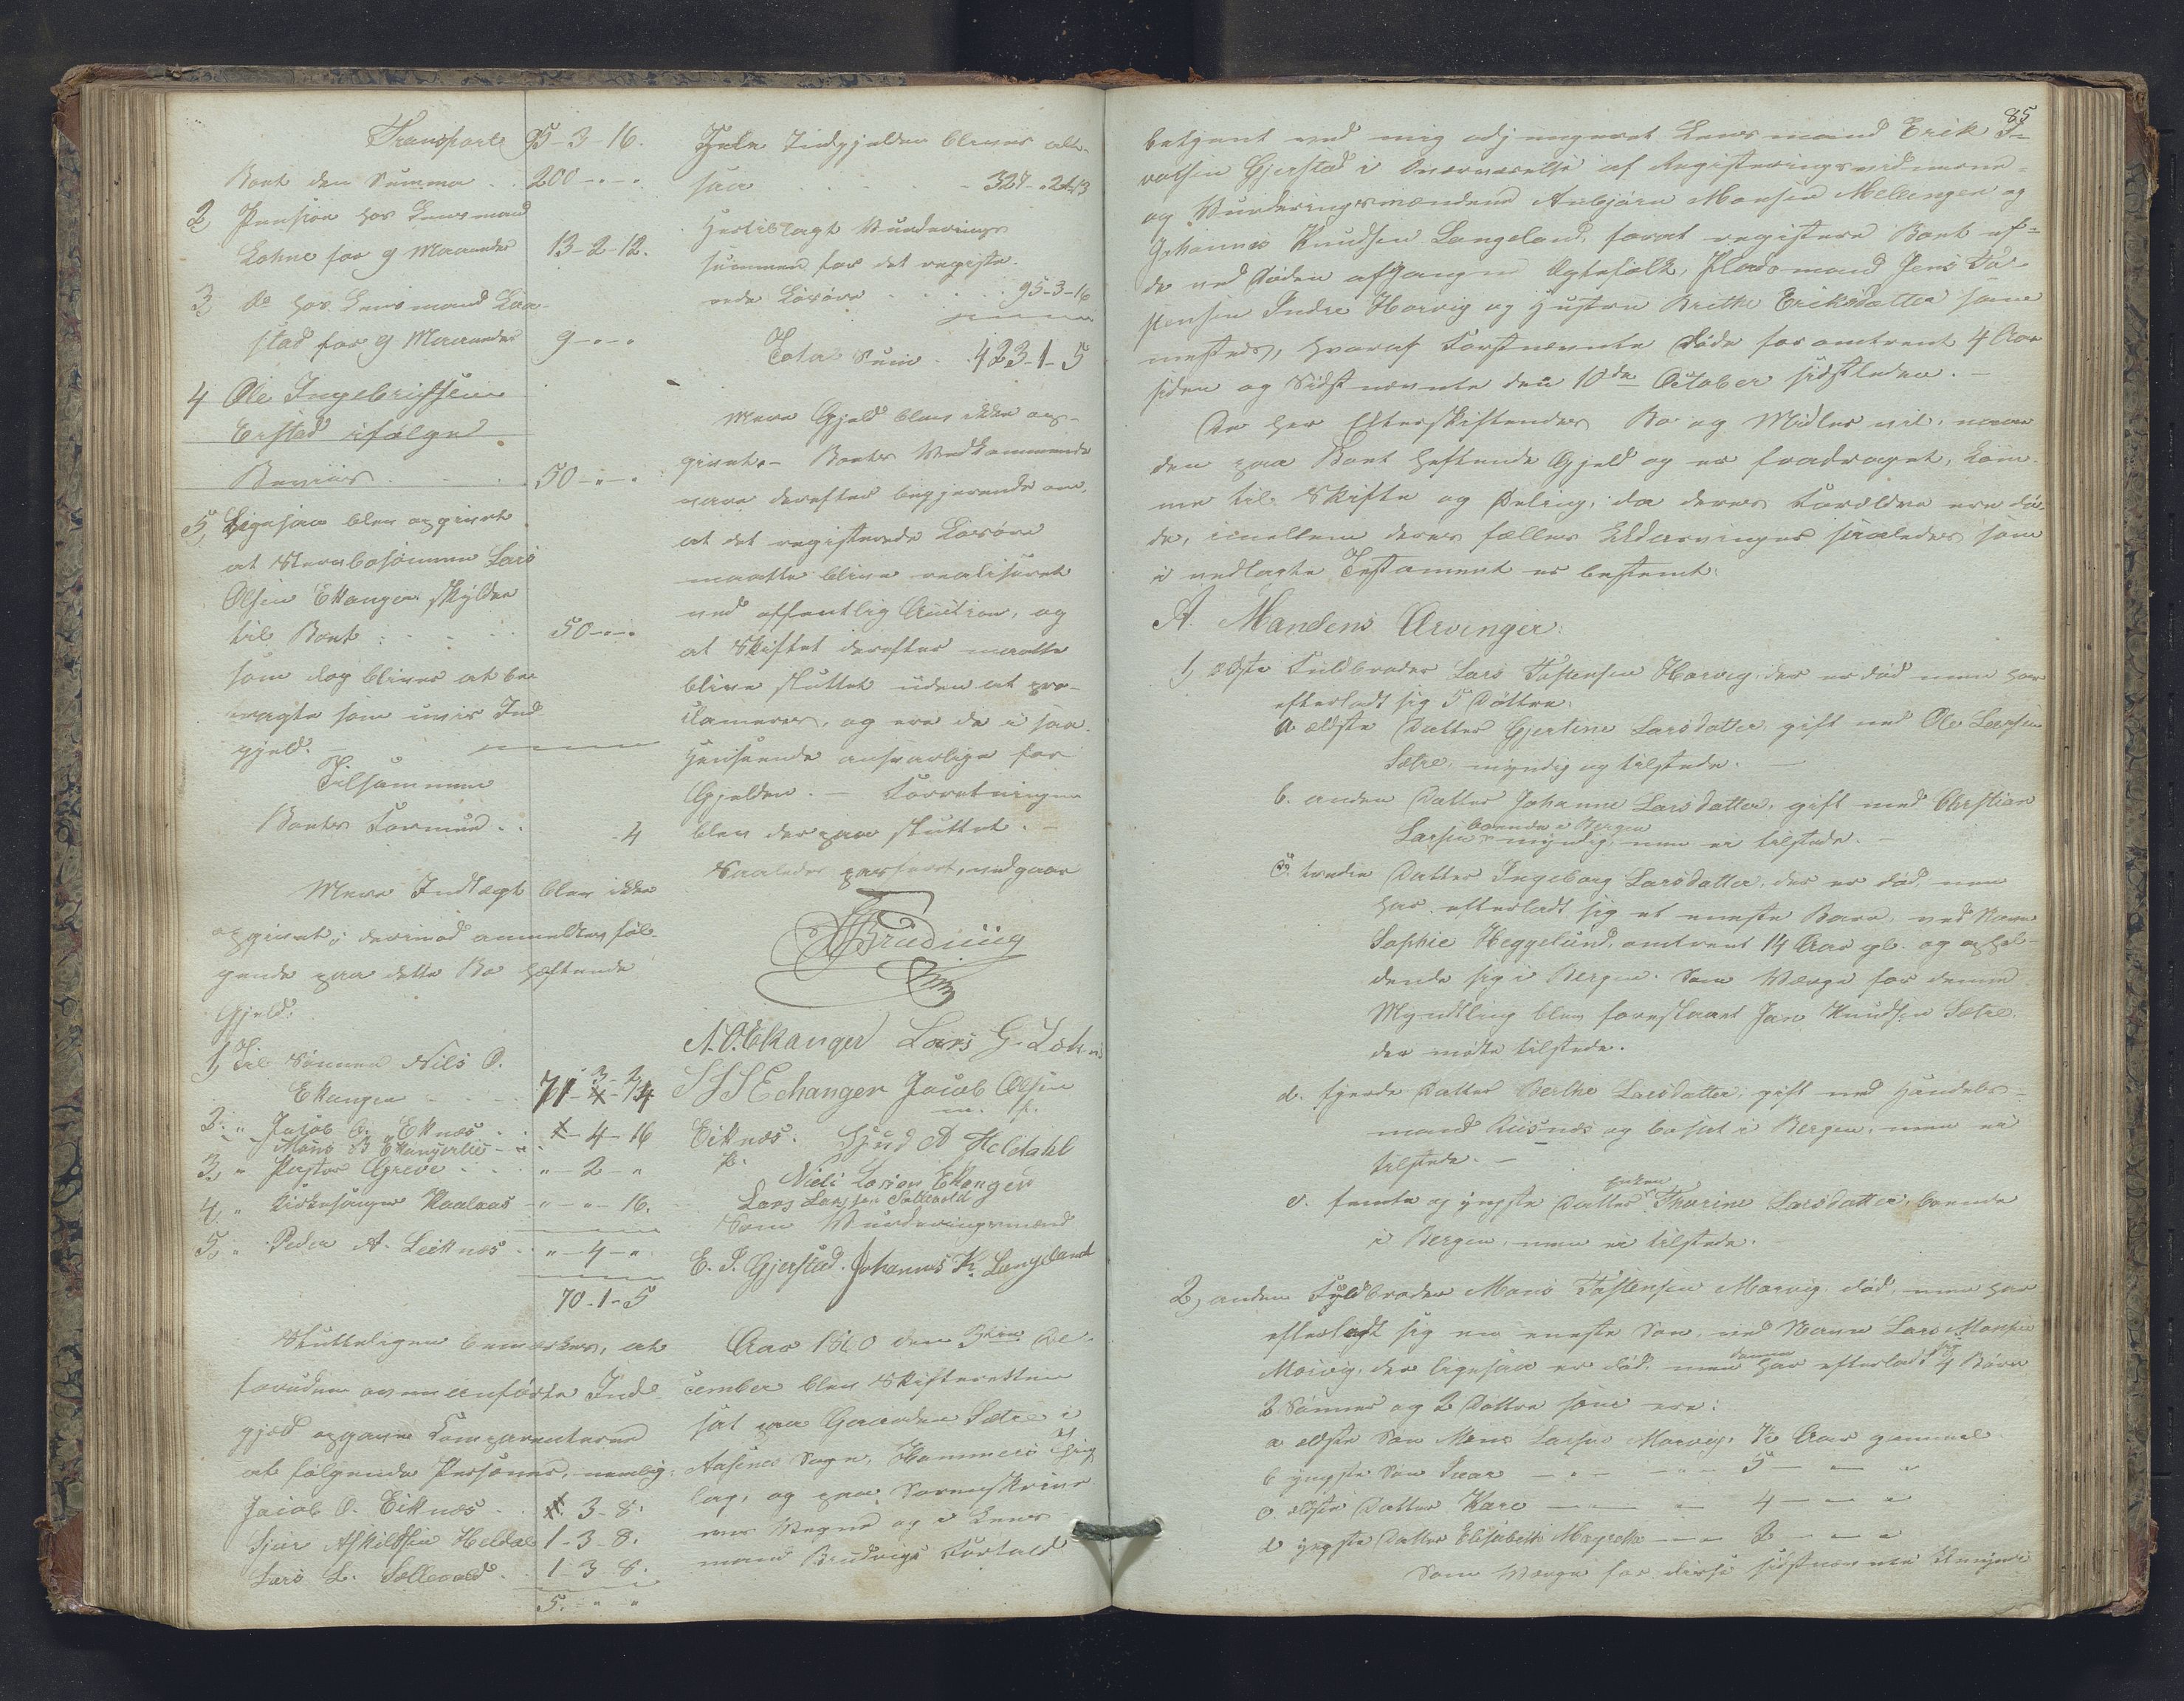 Transport 95-3-16.
Boet den Summa . . 200-"-"
2, Pension hos Lensmand
Lohne for 9 Maaneder 13-2-12.
3, do hos Lensmand Laa-
stad for 9 Maaneder 9-"-"
4 Ole Ingebrigtsen
Erstad ifølge
Beviis . . . 50-"-"
5, Ligesaa blev opgivet
at Stervbosønnen Lars
Olsen Ekanger skylder
til Boet . . . 50-"-"
som dog bliver at be-
tragte som uvis Ind-
gjeld.
Tilsammen
Boets Formue . .
Mere Indtægt blev ikke
opgivet; derimod anmeldtes føl-
gende paa dette Bo heftende
Gjeld:
1, Til Sønnen Nils O.
Ekanger
2. " Jacob O. Eknæs . . 4-16
Mons B Ekangerlie
3, " Pastor Greve . . . "-2-"
4, " Kirkesanger Kaalaas "-"-16.
5, " Peder A. Leiknes . . "-4-"
70-1-5
Slutteligen bemærkes, at
foruden ovenanførte Ind-
gjeld opgave Comparenterne
at følgende Personer, nemlig:
Jacob O. Eiknæs . . 3-8.
Sjur Askildsen Heldal 1-3-8.
Lars L. Sollevold . 1-3-8.
5. - " "
Hele Indgjelden bliver alt-
saa . . . . 327-
Hertil lagt Vurderings-
summen for det registe-
rede Løsøre . . . . 95-3-16
Total Sum . . 423-1-5
Mere Gjeld blev ikke op-
givet. - Boets Vedkommende
vare derefter begjerende om,
at det registerede Løsøre
maatte blive realiseret
ved offentlig Auction, og
at Skiftet derefter maatte
blive sluttet uden at pro-
clameres, og ere de i saa
Henseende ansvarlige for
Gjelden. - Forretningen
blev derpaa sluttet. -
Saaledes passeret, vedgaaes
Brudvig
N. O. Ekanger Lars G. Lohne
S S S Echanger Jacob Olsen
m. p.
Eiknæs. Sjud A Heldahl
Niels Larsen Ekanger
Lars Larssen Sollevold
Som Vurderingsmænd
E. I. Gjerstad. Johannes K. Langeland
Aar 1860 den De-
cember blev Skifteretten
sat paa Gaarden Sætre i
Aasene Sogn, Hammers Thing-
lag, og paa Sorenskrive-
rens Vegne og i Lens-
mand Brudvigs Forfald
85
betjent ved mig adjungeret Lensmand Erik I-
varsen Gjerstad i Overværelse af Registeringsvidnerne-
og Vurderingsmændene Anbjørn Monsen Mellingen og
Johannes Knudsen Langeland, foret registere Boet ef-
de ved Døden afgangne Ægtefolk, Pladsmand Jens To-
stensen Indre Horvig og Hustru Brithe Eriksdatter samme-
mesteds, hvoraf Førstnævnte døde for omtrent 4 Aar
siden og Sidstnævnte den 10de October sidstleden. -
De her Efterskiftendes Bo og Midler vil, naar
den paa Boet heftende Gjeld og er fradraget, kom-
me til Skifte og Deling, da deres Forældre ere dø-
de, imellem deres fælles Udarvinger saaledes som
i vedlagte Testament er bestemt:
A. Mandens Arvinger:
1, ældste Fuldbroder Lars Tostensen Horvig, der er død men har
efterladt sig 5 Døttre:
a ældste Datter Gjertine Larsdatter gift med Ole Larsen
Sætre, myndig og tilstede. -
b. anden Datter Johanne Larsdatter, gift med Christian
Larsen boende i Bergen myndig men ei tilstede. -
c. tredie Datter Ingeborg Larsdatter, der er død, men
har efterladt sig et eneste Barn, ved Navn
Sophie Heggelund, omtrent 14 Aar gl. og ophol-
dende sig i Bergen. Som Værge for denne
Myndtling blev foreslaaet Jan Knudsen Sætre,
der mødte tilstede.
d. fjerde Datter Berthe Larsdatter, gift med Handels-
mand Riisnæs og bosat i Bergen, men ei
tilstede. -
e. femte og yngste Datter Enken Thorine Larsdatter, boende
i Bergen, men ei tilstede.
2, anden Fuldbroder Mons Tostensen Morvig, død, men har
efterladt sig en eneste Søn, ved Navn Lars Monsen
Morvig, der ligesaa er død, men denne har efterladt sig 4 Børn
2 Sønner og 2 Døttre som ere:
a ældste Søn Mons Larsen Morvig, Aar gammel
b yngste Søn Ivar - " - - " - 5 - " - "
c. ældste Datter Kari - " - 4 - " - "
d yngste Datter Elisabeth Margrethe - " - 2 - " - "
Som Værge for disse sidstnævnte Umyndi-